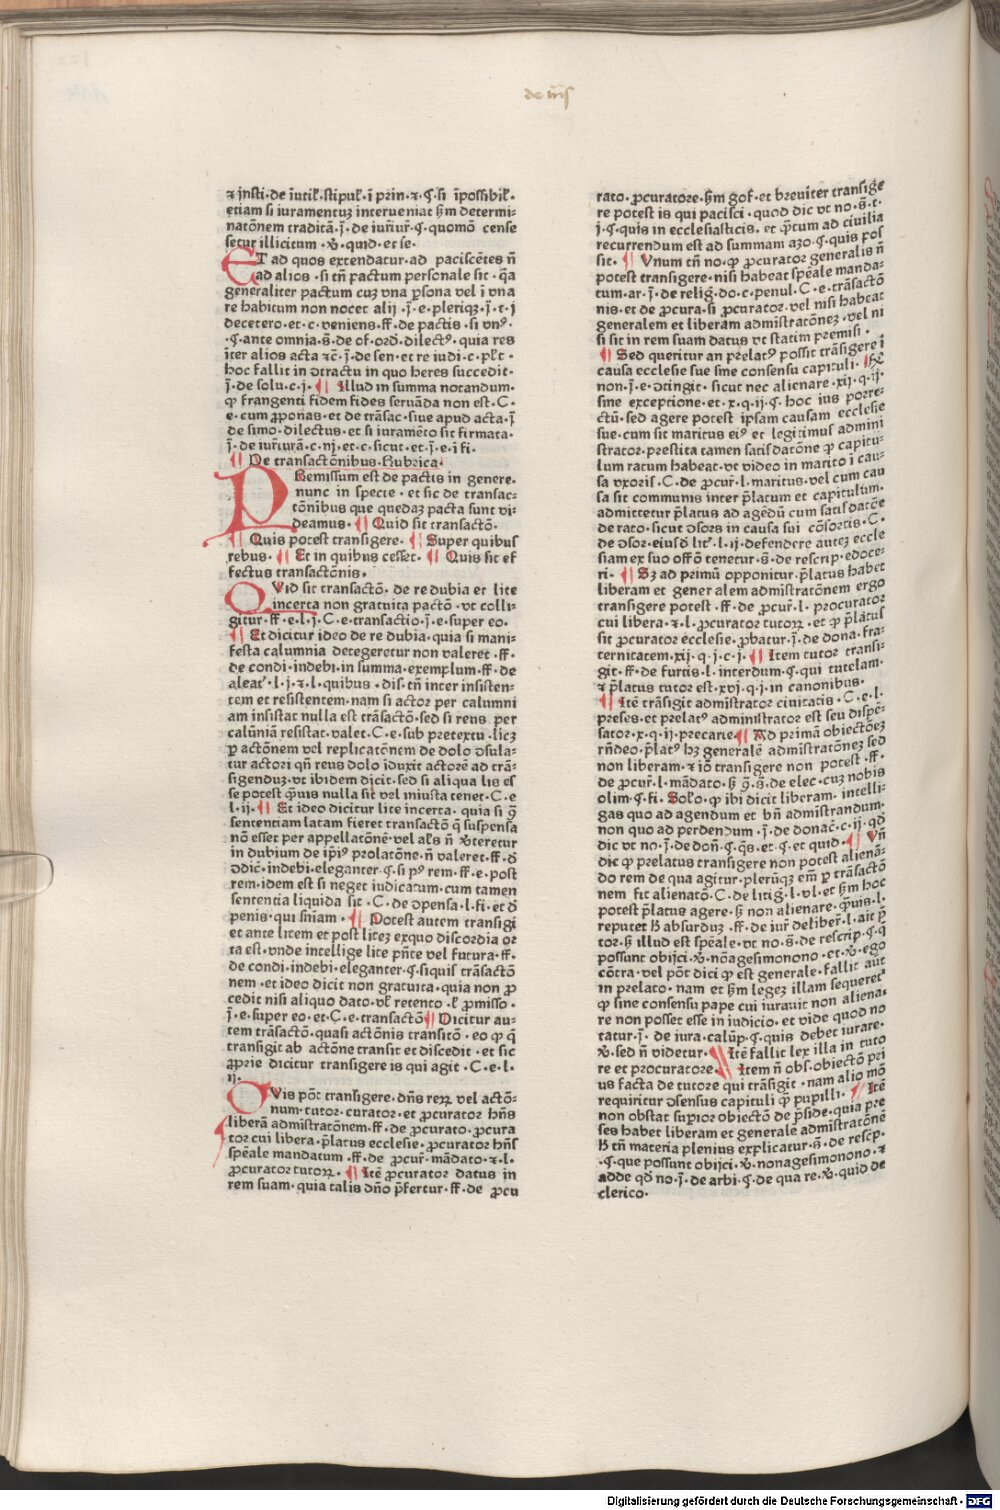 de trās
⁊ insti·de īutil̄·stipul̄·ī prin·⁊·ꝯ·si īpossibil̄·
etiam si iuramentuꝫ interueniat ẜm determi-
natōnem traditā·j̄·de iur̄iur̄·ꝯ·quomō cense
setur illicitum·ꝟ·quid·et se·
ET ad quos extendatur·ad paciscētes n̄
ad alios·si tn̄ pactum personale sit·q̄a
generaliter pactum cuꝫ vna ꝑsona vel ī vna
re habitum non nocet alij·j̄·e·pleriqꝫ·j̄·t·j
decetero·et·c·veniens·ff·de pactis·si vnꝰ·
·ꝯ·ante omnia·s̄·de of·ord·dilectꝰ·quia res
īter alios acta ⁊c̄·j̄·de sen·et re iudi·c·pl̄t·
hoc fallit in ↄtractu in quo heres succedit·
j̄·de solu·c·j·¶ Illud in summa notandum·
ꝙ frangenti fidem fides seruāda non est·C·
e·cum ꝓponas·et de trāsac·siue apud acta·j̄
de simo·dilectus·et si iuramēto sit firmata·
j̄·de iur̄iurā·c·iij·et·c·sicut·et·j̄·e·i fi·
¶ De transactōnibus·Rubrica·
PRemissum est de pactis in genere·
nunc in specie·et sic de transac-
tōnibus que quedaꝫ pacta sunt vi-
deamus·¶ Quid sit transactō·
¶ Quis potest transigere·¶ Super quibus
rebus·¶ Et in quibus cesset·¶ Quis sit ef
fectus transactōnis·
QVid sit transactō·de re dubia et lite
incerta non gratuita pactō·vt colli-
gitur·ff·e·l·j·C·e·transactio·j̄·e·super eo·
¶ Et dicitur ideo de re dubia·quia si mani-
festa calumnia detegeretur non valeret·ff·
de condi·indebi·in summa·exemplum·ff·de
aleatꝰ·l·j·⁊·l·quibus·dis·tn̄ inter insisten-
tem et resistentem·nam si actor per calumni
am insistat nulla est trāsactō·sed si reus per
calūniā resistat·valet·C·e·sub pretextu·licꝫ
ꝓ actōnem vel replicatōnem de dolo ↄsula-
tur actori qn̄ reus dolo īduxit actorē ad trā-
sigenduꝫ·vt ibidem dicit·sed si aliqua lis es
se potest q̄uis nulla sit vel iniusta tenet·C·e
l·ij·¶ Et ideo dicitur lite incerta·quia si ꝯ̄
sententiam latam fieret transactō q̄ suspensa
nō esset per appellatōnē·vel al̄s n̄ ꝟteretur
in dubium de ip̄iꝰ prolatōne·n̄ valeret·ff·d̄
ↄdic̄·indebi·eleganter·ꝯ·si pꝰ rem·ff·e·post
rem·idem est si neget iudicatum·cum tamen
sententia liquida sit·C·de ↄpensa·l·fi·et d̄
penis·qui sn̄iam·¶ Potest autem transigi
et ante litem et post liteꝫ exquo discordia or
ta est·vnde intellige lite pn̄te vel futura·ff·
de condi·indebi·eleganter·ꝯ·siquis trāsactō
nem·et ideo dicit non gratuita·quia non ꝓ
cedit nisi aliquo dato·vl̄ retento·l̄ ꝓmisso·
j̄·e·super eo·et·C·e·transactō·¶ Dicitur au-
tem trāsactō·quasi actōnis transitō·eo ꝙ q̄
transigit ab actōne transit et discedit·et sic
ꝓprie dicitur transigere is qui agit·C·e·l·
ij·
QVis pōt transigere·dn̄s reꝝ vel actō-
num·tutor·curator·et ꝓcurator hn̄s
liberā admīstratōnem·ff·de ꝓcurato·ꝓcura
tor cui libera·p̄latus ecclesie·ꝓcurator hn̄s
sp̄ale mandatum·ff·de ꝓcur̄·mādato·⁊·l·
ꝓcurator tutoꝝ·¶ Itē ꝓcurator datus in
rem suam·quia talis dn̄o p̄fertur·ff·de ꝓcu
rato·ꝓcuratore·ẜm gof·et breuiter transige
re potest is qui pacisci·quod dic vt no·s̄·t·
j·ꝯ·quis in ecclesiasticis·et q̄tum ad ciuilia
recurrendum est ad summam azo·ꝯ·quis pos
sit·¶ Vnum tn̄ no·ꝙ ꝓcurator generalis n̄
potest transigere·nisi habeat sp̄ale manda-
tum·ar·j̄·de reliḡ·do·c·penul·C·e·trāsactō
nis·et de ꝓcura·si ꝓcurator·vel nisi habeat
generalem et liberam admīstratōneꝫ·vel ni
si sit in rem suam datus vt statim premisi·
¶ Sed queritur an prelatꝰ possit trāsigere ī
causa ecclesie sue sine consensu capituli·¶ Hͦ
non·j̄·e·ↄtingit·sicut nec alienare·xij·q·ij·
sine exceptione·et·x·q·ij·ꝯ·hoc ius porre-
ctū·sed agere potest ipsam causam ecclesie
sue·cum sit maritus eiꝰ et legitimus admini
strator·prestita tamen satisdatōne ꝙ capitu-
lum ratum habeat·vt video in marito ī cau-
sa vxoris·C·de ꝓcur̄·l·maritus·vel cum cau
sa sit communis inter p̄latum et capitulum·
admittetur p̄latus ad agēdū cum satisdatōe
de rato·sicut ↄsors in causa sui cōsortis·C·
de ↄsor·eiusd̄ lit̄·l·ij·defendere auteꝫ eccle
siam ex suo offō tenetur·s̄·de rescrip·edoce-
ri·¶ Sꝫ ad primū opponitur·p̄latus habet
liberam et generalem admīstratōnem ergo
transigere potest·ff·de ꝓcur̄·l·procurator
cui libera·⁊·l·ꝓcurator tutoꝝ·et ꝙ p̄latus
sit ꝓcurator ecclesie·ꝓbatur·j̄·de dona·fra-
ternitatem·xij·q·j·c·j·¶ Item tutor transi-
git·ff·de furtis·l·interdum·ꝯ·qui tutelam·
⁊ p̄latus tutor est·xvj·q·j·in canonibus·
¶ Itē trāsigit admīstrator ciuitatis·C·e·l·
preses·et prelatꝰ administrator est seu dispē-
sator·x·q·ij·precarie·¶ Ad primā obiectōeꝫ
rn̄deo·p̄latꝰ hꝫ generalē admīstratōneꝫ sed
non liberam·⁊ iō transigere non potest·ff·
de ꝓcur̄·l·mādato·ẜ ꝯ̄·s̄·de elec·cuꝫ nobis
olim·ꝯ·fi·Solō·ꝙ ibi dicit liberam·intelli-
gas quo ad agendum et bn̄ admīstrandum·
non quo ad perdendum·j̄·de donac̄·c·ij·qd̄
dic vt no·j̄·de don̄·ꝯ·q̄s·et·ꝯ·et quid·¶ Vn̄
dic ꝙ prelatus transigere non potest alienā-
do rem de qua agitur·plerūqꝫ em̄ ꝑ trāsactō
nem fit alienatō·C·de litiḡ·l·vl·et ẜm hoc
potest p̄latus agere·ẜ non alienare·q̄uis·l·
reputet ẜ absurduꝫ·ff·de iur̄ deliber̄·l·ait p̄
tor·ẜ illud est sp̄ale·vt no·s̄·de rescrip·ꝯ·q̄
possunt obijci·ꝟ·nōagesimonono·et·ꝟ·ego
cōtra·vel pōt dici ꝙ est generale·fallit aut̄
in prelato·nam et ẜm legeꝫ illam sequeret̄
ꝙ sine consensu pape cui iurauit non aliena-
re non posset esse in iudicio·et vide quod no
tatur·j̄·de iura·calūp̄·ꝯ·quis debet iurare·
ꝟ·sed n̄ videtur·¶ Itē fallit lex illa in tuto
re et procuratore·¶ Item n̄ obs·obiectō pri
us facta de tutore qui trāsigit·nam alio mō
requiritur ↄsensus capituli q̄ pupilli·¶ Itē
non obstat superior obiectō de p̄side·quia pre
ses habet liberam et generalē admīstratōnē
ẜ tn̄ materia plenius explicatur·s̄·de rescp̄·
·ꝯ·que possunt obijci·ꝟ·nonagesimonono·⁊
adde qd̄ no·j̄·de arbi·ꝯ·de qua re·ꝟ·quid de
clerico·
Digitalisierung gefördert durch die Deutsche Forschungsgemeinschaft - DFG